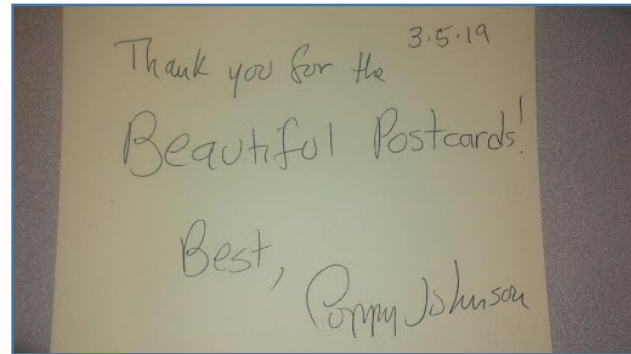 3.5.19
Thank you for the
Beautiful Postcards!
Best,
Poppy Johnson